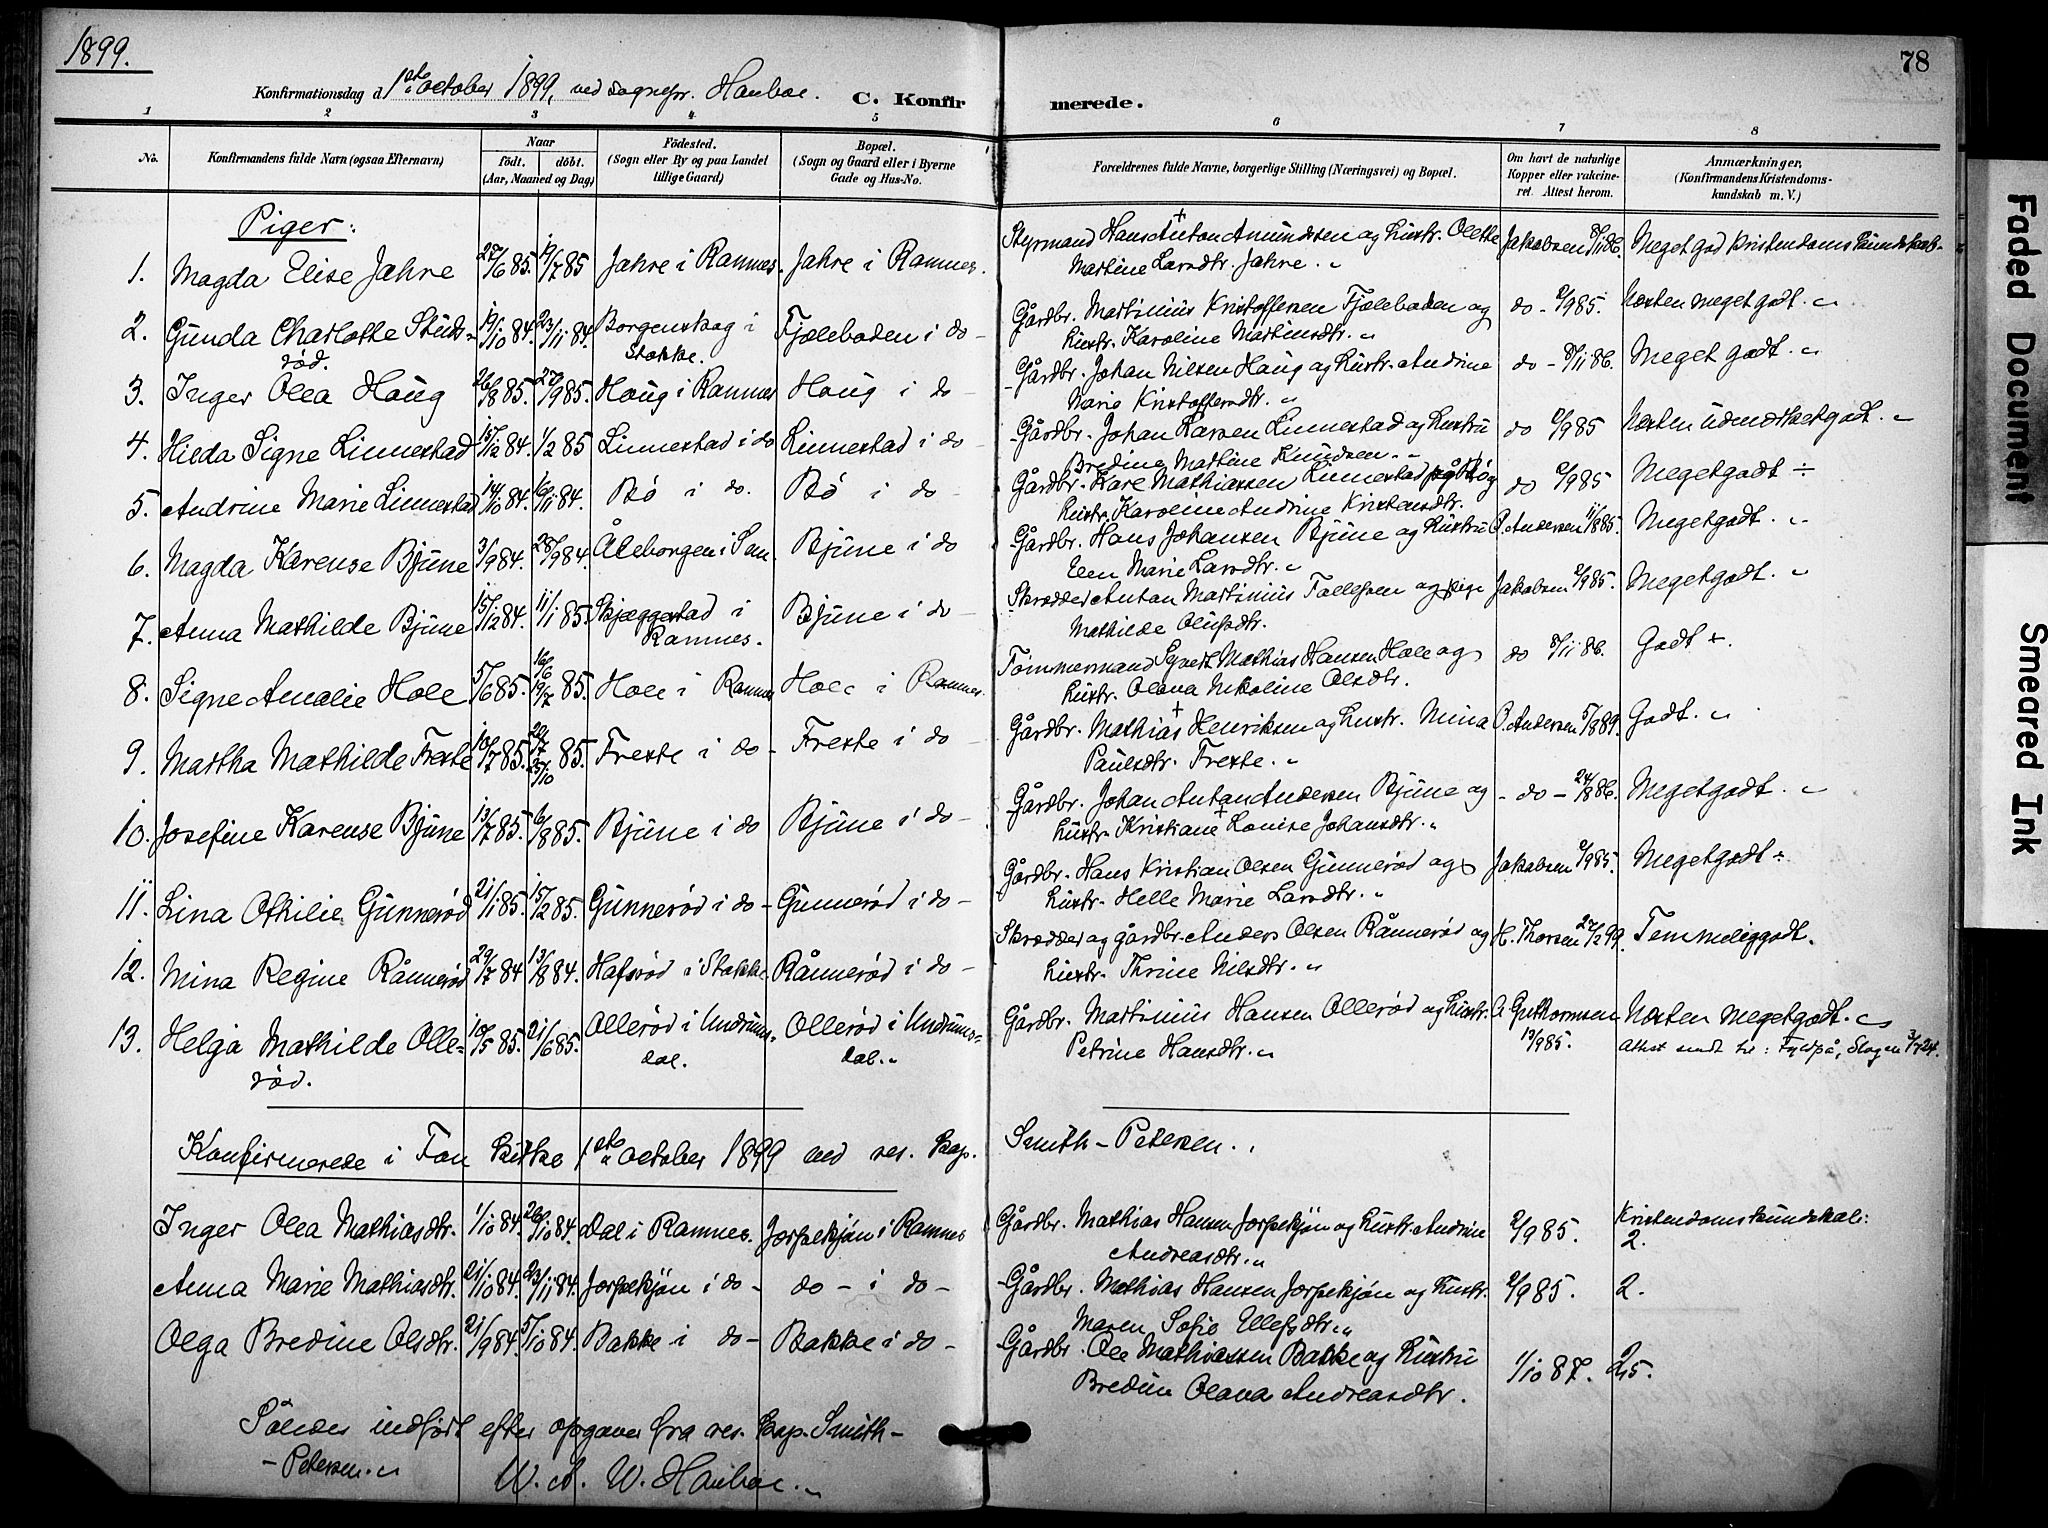 1899.
78
Konfirmationsdag d 1ste october 1899, ved sognepr. Hauboe.
C. Konfirmerede.
1 2 3 4 5 6 7 8
No.
Konfirmandens fulde Navn (ogsaa Efternavn)
Naar
födt. döbt.
(Aar, Maaned og Dag)
Födested.
(Sogn eller By og paa Landet
tillige Gaard.)
Bopæl.
(Sogn og Gaard eller i Byerne
Gade og Hus-No.
Forældrenes fulde Navne, borgerlige Stilling (Næringsvei) og Bopæl.
Om havt de naturlige
Kopper eller vakcine-
ret. Attest herom.
Anmærkninger.
(Konfirmandens Kristendoms-
kundskab m. V.)
Piger:
1. Magda Elise Jahre 27/6 85. 19/7 85 Jahre i Ramnes. Jahre i Ramnes. Styrmand Hans Anton Amundsen og Hustr. Olette Jakobsen 8/11 86. Meget god Kristendomskundskab.
Martine Larsdtr. Jahre.
2. Gunda Charlotte Stuls- 19/10 84. 23/11 84. Borgenskog i Fjæleboden i do Gårdbr. Martinius Kristoffersen Fjæleboden og do 2/9 85. Næsten meget godt.
rød. Stokke. Hustr. Karoline Martinsdtr.
3. Inger Olea Haug 26/8 85. 27/9 85. Haug i Ramnes Haug i do Gårdbr. Johan Nilsen Haug og Hustr. Andrine do 8/11 86. Meget godt.
Marie Kristoffersdtr.
4. Hilda Signe Linnestad 15/12 84. 1/2 85 Linnestad i do Linnestad i do Gårdbr. Johan Larsen Linnestad og Hustru do 2/9 85 Næsten udmærket godt.
Bredine Martine Knudsen.
5. Andrine Marie Linnestad 14/10 84. 16/11 84. Bø i do. Bø i do Gårdbr. Kare Mathiassen Linnestad på Bø og do 2/9 85 Meget godt ÷
Hustr. Karoline Andrine Kristensdtr.
6. Magda Karense Bjune 3/9 84. 28/9 84. Åleborgen i Sem Bjune i do Gårdbr. Hans Johansen Bjune og Hustru P. Andersen 11/8 85. Meget godt.
Elen Marie Larsdtr.
7. Anna Mathilde Bjune 15/12 84. 11/1 85. Skjæggestad i Bjune i do Skrædder Anton Martinius Tollefsen og pige Jakobsen 2/9 85. Meget godt.
Ramnes. Mathilde Olufsdtr.
8. Signe Amalie Hole 5/6 85. 16/6 19/7 85. Hole i Ramnes Hole i Ramnes. Tømmermand Syvert Mathias Hansen Hole og do 8/11 86. Godt ÷.
Hustr. Olava Nikoline Olsdtr.
9. Martha Mathilde Freste 10/7 85. 20/7 25/10 85. Freste i do Freste i do Gårdbr. Mathias Henriksen og Hustr. Mina P. Andersen 5/9 89. Godt.
Paulsdtr. Freste.
10. Josefine Karense Bjune 13/7 85. 6/8 85. Bjune i do Bjune i do Gårdbr. Johan Antan Andersen Bjune og - do - 24/8 86. Meget godt.
Hustr. Kristiane Lovise Johansdtr.
11. Lina Othilie Gunnerød 21/1 85. 15/2 85. Gunnerød i do Gunnerød i do Gårdbr. Hans Kristian Olsen Gunnerød og Jakobsen 2/9 85. Meget godt ÷
Hustr. Helle Marie Larsdtr.
12. Mina Regine Rånnerød 29/7 84 13/8 84. Hafsrød i Stokke Rånnerød i do Skrædder og gårdbr. Anders Olsen Rånnerød og H. Thorsen 27/2 99. Temmelig godt.
Hustr. Thrine Nilsdtr.
13. Helga Mathilde Olle- 10/5 85. 21/6 85. Ollerød i Undrums- Ollerød i Undrums- Gårdbr. Martinius Hansen Ollerød og Hustr. A Guthormsen Næsten meget godt.
rød. dal. dal. Petrine Hansdtr. 13/9 85. Attest sendt til: Fyldpå, Slagen 3/7 24.
Konfirmerede i Fon kirke 1ste october 1899 ved res. kap. Smith-Petersen.
Inger Olea Mathiasdtr. 1/10 84. 26/10 84. Dal i Ramnes. Jorpekjøn i Ramnes Gårdbr. Mathias Hansen Jorpekjøn og Hustr. Andrine 2/9 85. Kristendomskundskab:
Andreasdtr. 2.
Anna Marie Mathiasdtr. 21/10 84. 23/11 84. Jorpekjøn i do - do - i do - Gårdbr. Mathias Hansen Jorpekjøn og Hustr. 2/9 85. 2.
Maren Sofie Ellefsdtr.
Olga Bredine Olsdtr. 21/9 84. 5/10 84. Bakke i do - Bakke i do - Gårdbr. Ole Mathiassen Bakke og Hustru 1/10 87. 2,5.
Bredine Olava Andreasdtr.
Således indført efter opgave fra res. kap. Smith-
- Petersen.
W. A. W. Hauboe.
Faded Document
Smeared Ink